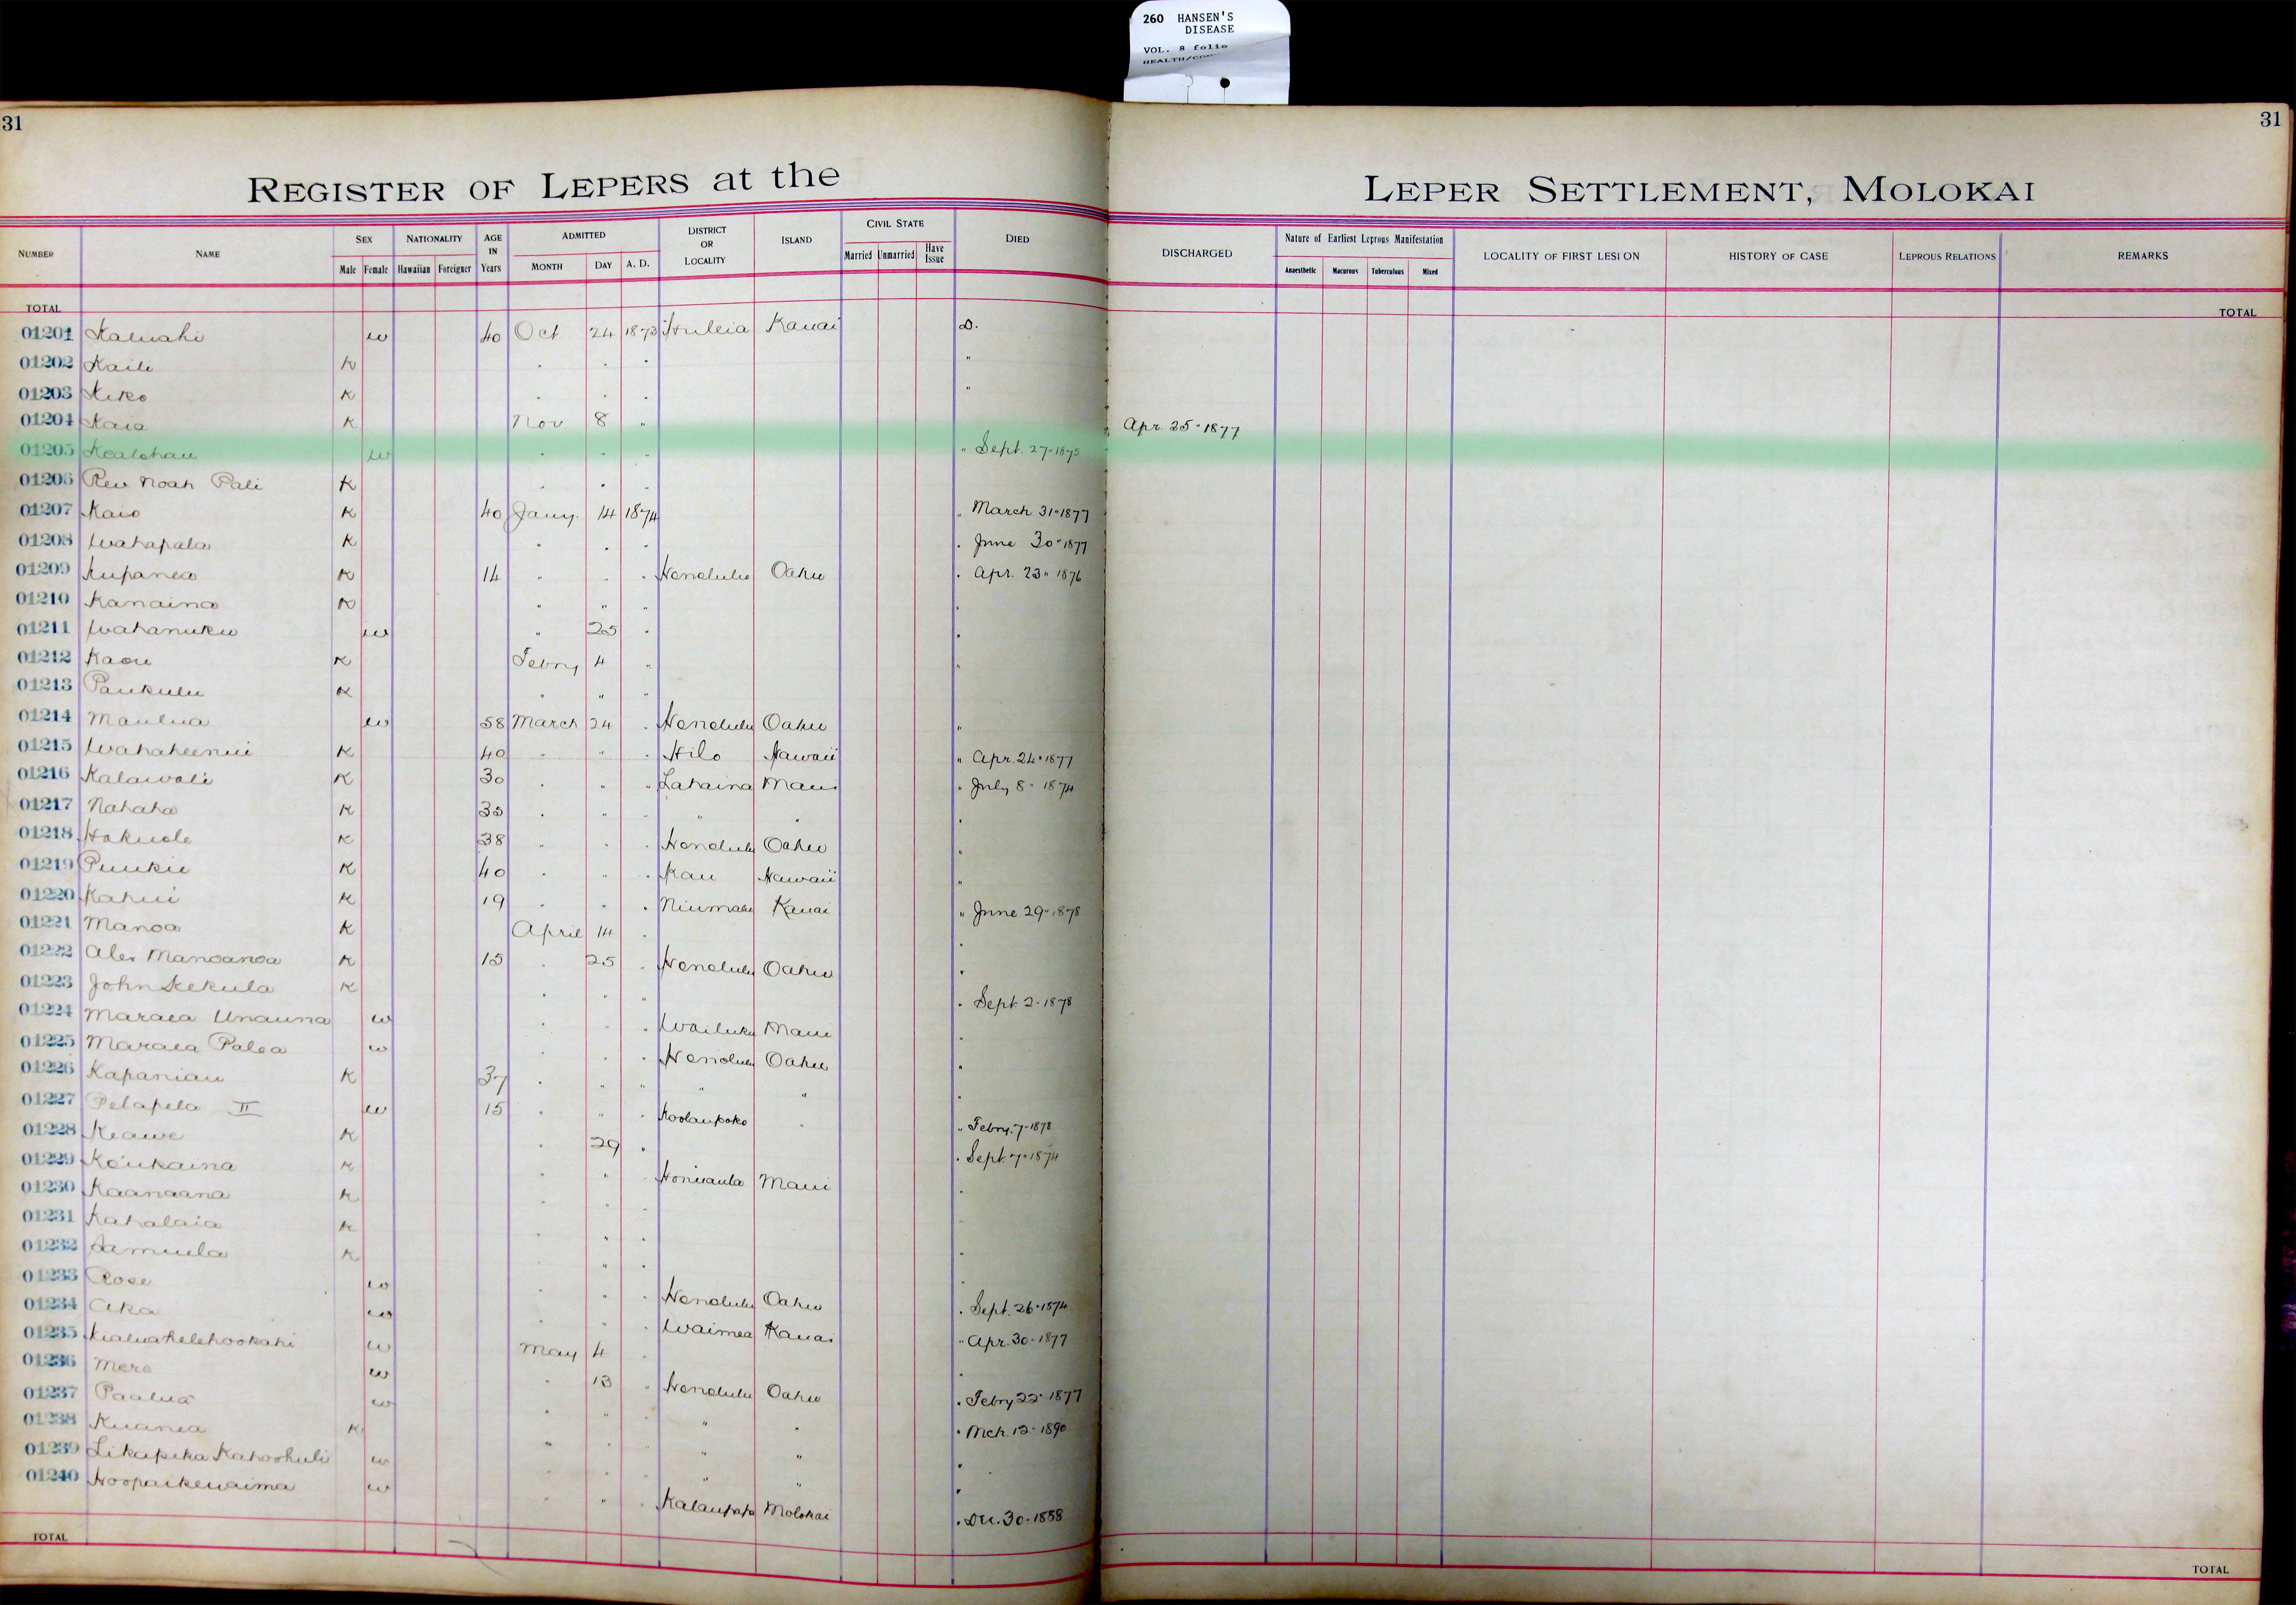 260 HANSEN'S
DISEASE
VOL. 8 folio
31 31
REGISTER OF LEPERS at the LEPER SETTLEMENT, MOLOKAI
NUMBER NAME SEX Male Female NATIONALITY Hawaiian Foreigner AGE IN Years ADMITTED MONTH DAY A. D. DISTRICT OR LOCALITY ISLAND CIVIL STATE Married Unmarried Have Issue DIED DISCHARGED Nature of Earliest Leprous Manifestation Anaesthetic Macurous Tuberculous Mixed LOCALITY OF FIRST LESION HISTORY OF CASE LEPROUS RELATIONS REMARKS
TOTAL TOTAL
01201 Kaluahi w 40 Oct 24 1873 Huleia Kauai D.
01202 Kaili K " " " "
01203 Keko K " " " "
01204 Kaia K Nov 8 " Apr. 25" 1877
01205 Kealohau w " " " " Sept. 27" 1875
01206 Rev Noah Pali K " " "
01207 Kaio K 40 Jany. 14 1874 " March 31" 1877
01208 Wahapala K " " " " June 30" 1877
01209 Kupanea K 14 " " " Honolulu Oahu " Apr. 23" 1876
01210 Kanaina K " " " "
01211 Wahanuku w " 25 " "
01212 Kaou K Febry 4 " "
01213 Paukulu K " " "
01214 Maulua w 58 March 24 " Honolulu Oahu "
01215 Wahaheenui K 40 " " " Hilo Hawaii " Apr. 24" 1877
01216 Kalawali K 30 " " " Lahaina Maui " July 8" 1874
01217 Nahaha K 35 " " " " " "
01218 Hokuole K 38 " " " Honolulu Oahu "
01219 Puukie K 40 " " " Kau Hawaii "
01220 Kahui K 19 " " " Niumalu Kauai " June 29" 1878
01221 Manoa K April 14 " "
01222 Alex Manoanoa K 15 " 25 " Honolulu Oahu "
01223 John Kekula K " " " " Sept. 2" 1878
01224 Maraea Unauna w " " " Wailuku Maui "
01225 Maraea Palea w " " " Honolulu Oahu "
01226 Kapaniau K 37 " " " " " "
01227 Pelapela II w 15 " " " Koolaupoko " " Febry. 7" 1878
01228 Keawe K " 29 " " Sept. 7" 1874
01229 Keukaina K " " " Honuaula Maui "
01230 Kaanaana K " " "
01231 Kahalaia K " " "
01232 Samuela K " " "
01233 Rose w " " " Honolulu Oahu " Sept. 26" 1874
01234 Aka w " " " Waimea Kauai " Apr. 30" 1877
01235 Kialuahelehookahi w May 4 " "
01236 Mere w " 13 " Honolulu Oahu " Febry 22" 1877
01237 Paalua w " " " " " " Mch. 12" 1890
01238 Kuanea K " " " " " "
01239 Likapeka Kahoohuli w " " " " " "
01240 Hoopaikewaima w " " " Kalaupapa Molokai " Dec. 30" 1888
TOTAL TOTAL